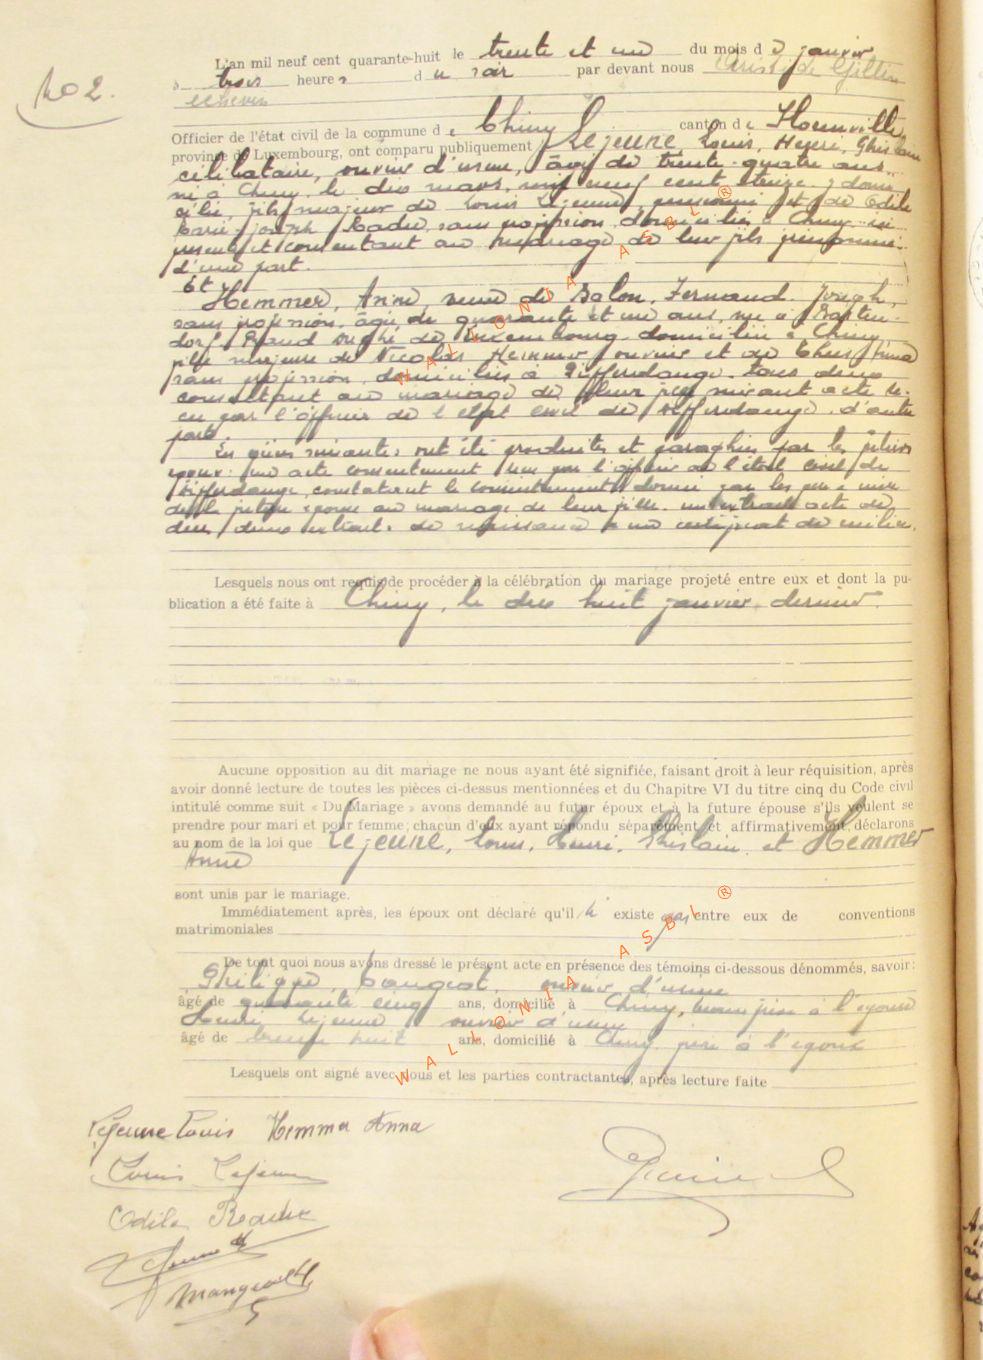 No 2.
L'an mil neuf cent quarante-huit le trente et un du mois de janvier
à trois heures du soir par devant nous
échevin
Officier de l'état civil de la commune de Chiny canton de Florenville,
province de Luxembourg, ont comparu publiquement Lejeune, Louis, Henri, Ghislain
célibataire, ouvrier d'usine, âgé de trente-quatre ans
né à Chiny le dix mars, mil neuf cent treize, domi-
cilié, fils majeur de Louis Lejeune, et de Odile
Marie Joseph sans profession, domiciliés à Chiny, ici
présents et consentant au mariage de leur fils prénommé.
d'une part.
Et
Hemmer, Anne, veuve de Salon, Fernand Joseph,
sans profession, âgée de quarante et un ans, née à
Grand Duché de Luxembourg, domiciliée à Chiny
fille majeure de Nicolas Hemmer, ouvrier et de
sans profession, domiciliés à Differdange. Tous deux
consentant au mariage de leur fille suivant acte re-
çu par l'officier de l'état civil de Differdange. d'autre
part.
Les pièces suivantes ont été produites et paraphées par les futurs
époux: un acte consentement reçu par l'officier de l'état civil de
Differdange, constatant le consentement donné par les père et mère
de la future épouse au mariage de leur fille. un extrait acte de
deux extraits de naissance un certificat de milice.
Lesquels nous ont requis de procéder à la célébration du mariage projeté entre eux et dont la pu-
blication a été faite à Chiny, le dix huit janvier dernier.
Aucune opposition au dit mariage ne nous ayant été signifiée, faisant droit à leur réquisition, après
avoir donné lecture de toutes les pièces ci-dessus mentionnées et du Chapitre VI du titre cinq du Code civil
intitulé comme suit « Du Mariage » avons demandé au futur époux et à la future épouse s'ils veulent se
prendre pour mari et pour femme; chacun d'eux ayant répondu séparément et affirmativement, déclarons
au nom de la loi que Lejeune, Louis, Henri, Ghislain et Hemmer
Anne
sont unis par le mariage.
Immédiatement après, les époux ont déclaré qu'il n' existe pas entre eux de conventions
matrimoniales
De tout quoi nous avons dressé le présent acte en présence des témoins ci-dessous dénommés, savoir:
Philippe, ouvrier d'usine
âgé de quarante cinq ans, domicilié à Chiny, beau-frère à l'époux
Henri Lejeune ouvrier d'usine
âgé de trente huit ans, domicilié à Chiny frère à l'époux
Lesquels ont signé avec nous et les parties contractantes, après lecture faite
Lejeune Louis Hemmer Anna
Louis Lejeune
Odile
WALLONIA ASBL ®
WALLONIA ASBL ®